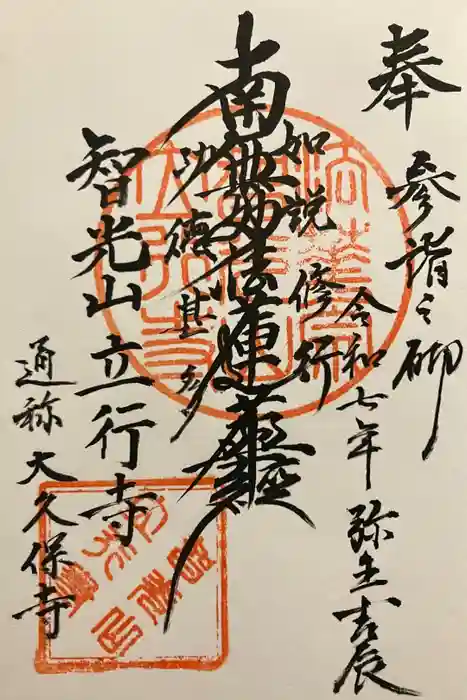 奉
参詣之砌
令和七年 弥生吉辰
如説修行
南無妙法蓮華経
功徳甚多
智光山立行寺
通称大久保寺